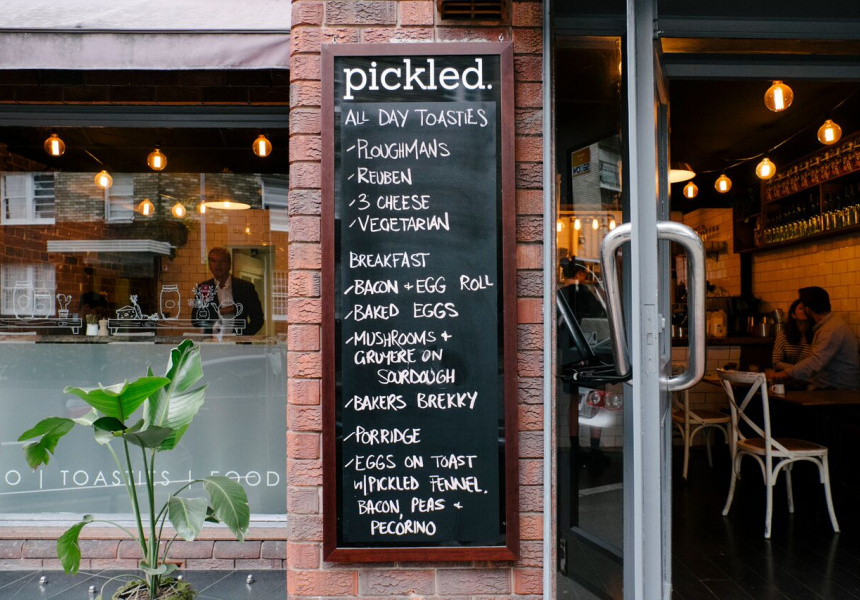 pickled.
ALL DAY TOASTIES
-PLOUGHMANS
-REUBEN
-3 CHEESE
-VEGETARIAN
BREAKFAST
-BACON + EGG ROLL
-BAKED EGGS
-MUSHROOMS +
GRUYERE ON
SOURDOUGH
-BAKERS BREKKY
-PORRIDGE
-EGGS ON TOAST
W/PICKLED FENNEL,
BACON, PEAS +
PECORINO
O | TOASTIES | FOOD